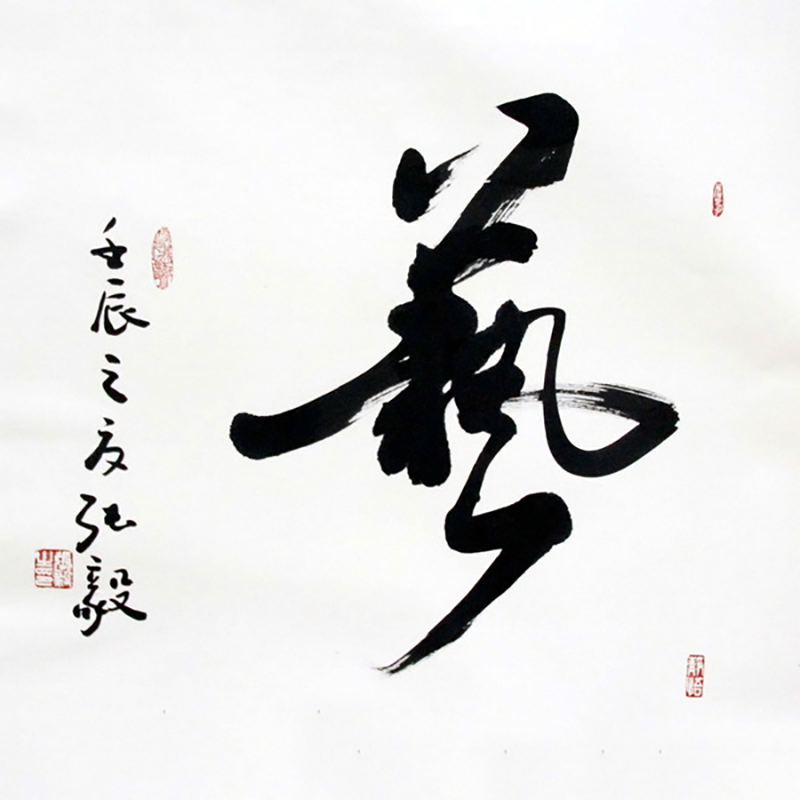 藝
壬辰之夏張毅